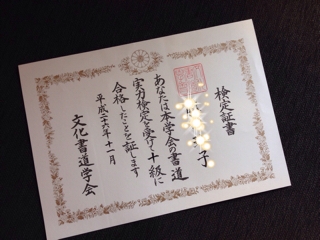 検定証書
子
あなたは本学会の書道
実力検定を受けて十級に
合格したことを証します
平成二十六年十一月
文化書道学会